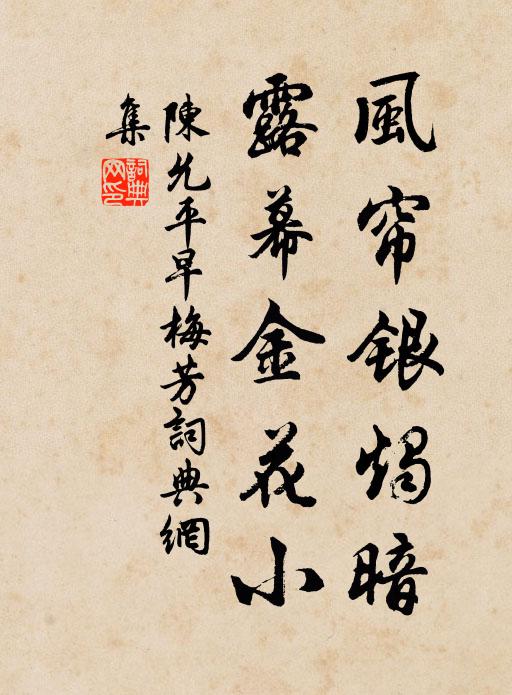 風帘銀燭暗
露幕金花小
陳允平早梅芳詞典網
集
詞典網印